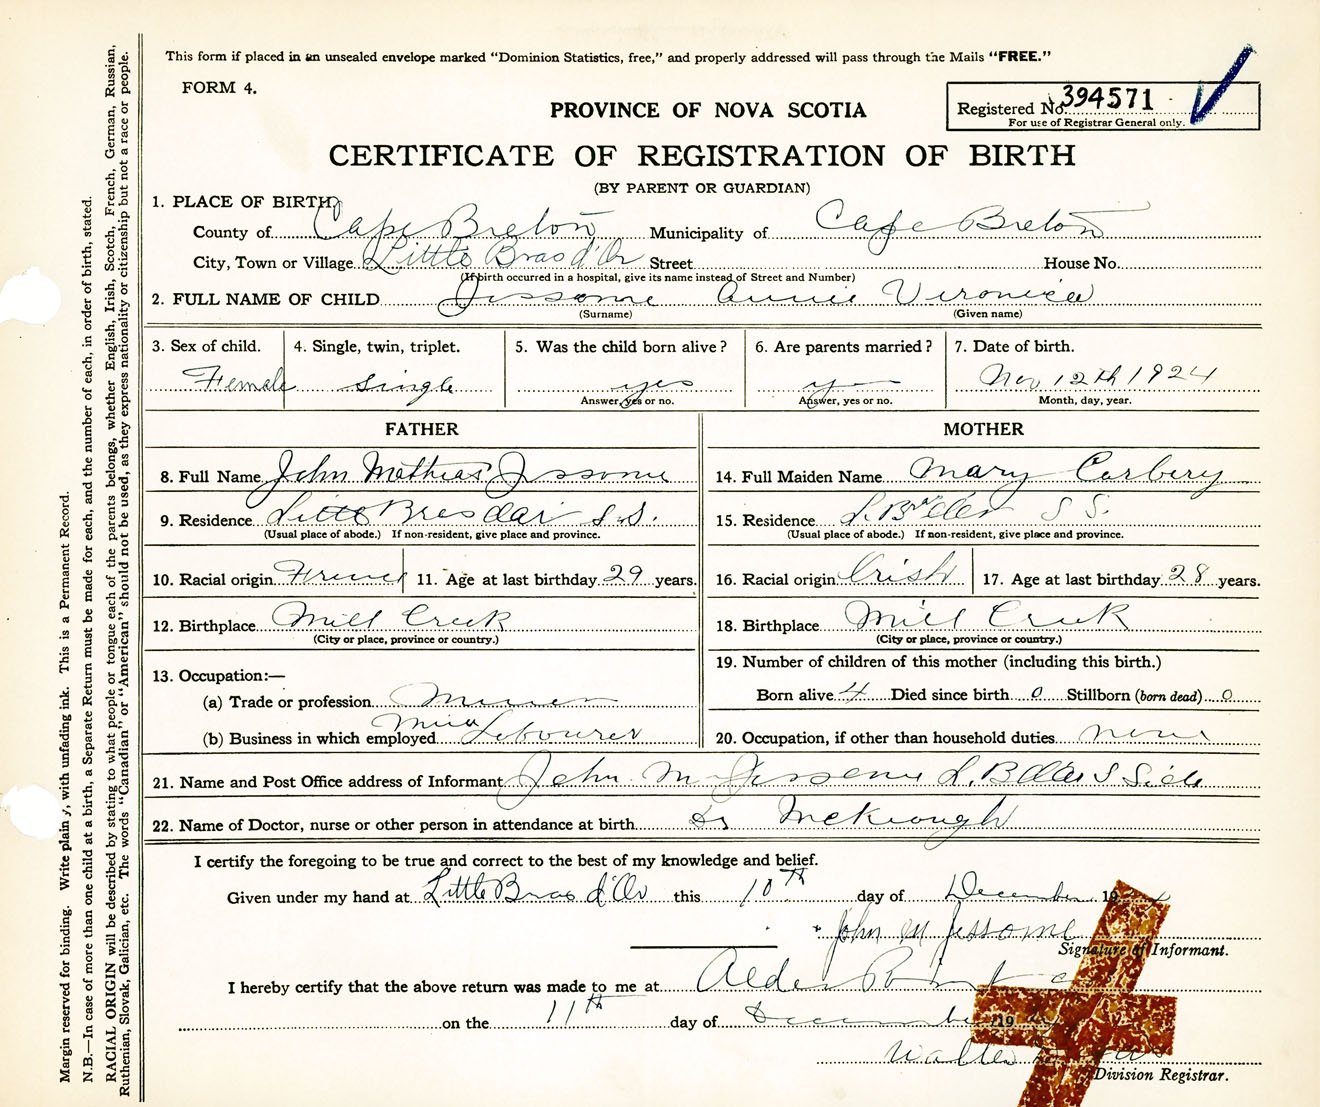 This form if placed in an unsealed envelope marked “Dominion Statistics, free,” and properly addressed will pass through the Mails “FREE.”
FORM 4.
Registered No. 394571
For use of Registrar General only.
PROVINCE OF NOVA SCOTIA
CERTIFICATE OF REGISTRATION OF BIRTH
(BY PARENT OR GUARDIAN)
1. PLACE OF BIRTH
County of Cape Breton Municipality of Cape Breton
City, Town or Village Little Bras d'Or Street House No.
(If birth occurred in a hospital, give its name instead of Street and Number)
2. FULL NAME OF CHILD Jessome Annie Veronica
(Surname) (Given name)
3. Sex of child. 4. Single, twin, triplet. 5. Was the child born alive? 6. Are parents married? 7. Date of birth.
Female single yes y Nov 12th 1924
Answer, yes or no. Answer, yes or no. Month, day, year.
FATHER MOTHER
8. Full Name John Mathias Jessome 14. Full Maiden Name Mary Carbery
9. Residence Little Bras dor S.S. 15. Residence S S.
(Usual place of abode.) If non-resident, give place and province. (Usual place of abode.) If non-resident, give place and province.
10. Racial origin French 11. Age at last birthday 29 years. 16. Racial origin Irish 17. Age at last birthday 28 years.
12. Birthplace Mill Creek 18. Birthplace Mill Creek
(City or place, province or country.) (City or place, province or country.)
13. Occupation:— 19. Number of children of this mother (including this birth.)
(a) Trade or profession Miner Born alive 4 Died since birth 0 Stillborn (born dead) 0
(b) Business in which employed Mine Labourer 20. Occupation, if other than household duties none
21. Name and Post Office address of Informant John M Jessome L. B S Side
22. Name of Doctor, nurse or other person in attendance at birth Dr McKeough
I certify the foregoing to be true and correct to the best of my knowledge and belief.
Given under my hand at Little Bras d'Or this 10th day of December 19 4
John M Jessome
Signature of Informant.
I hereby certify that the above return was made to me at Alder Point
on the 11th day of December 19
Walter
Division Registrar.
Margin reserved for binding. Write plainly, with unfading ink. This is a Permanent Record.
N.B.—In case of more than one child at a birth, a Separate Return must be made for each, and the number of each, in order of birth, stated.
RACIAL ORIGIN will be described by stating to what people or tongue each of the parents belongs, whether English, Irish, Scotch, French, German, Russian,
Ruthenian, Slovak, Galician, etc. The words “Canadian” or “American” should not be used, as they express nationality or citizenship but not a race or people.